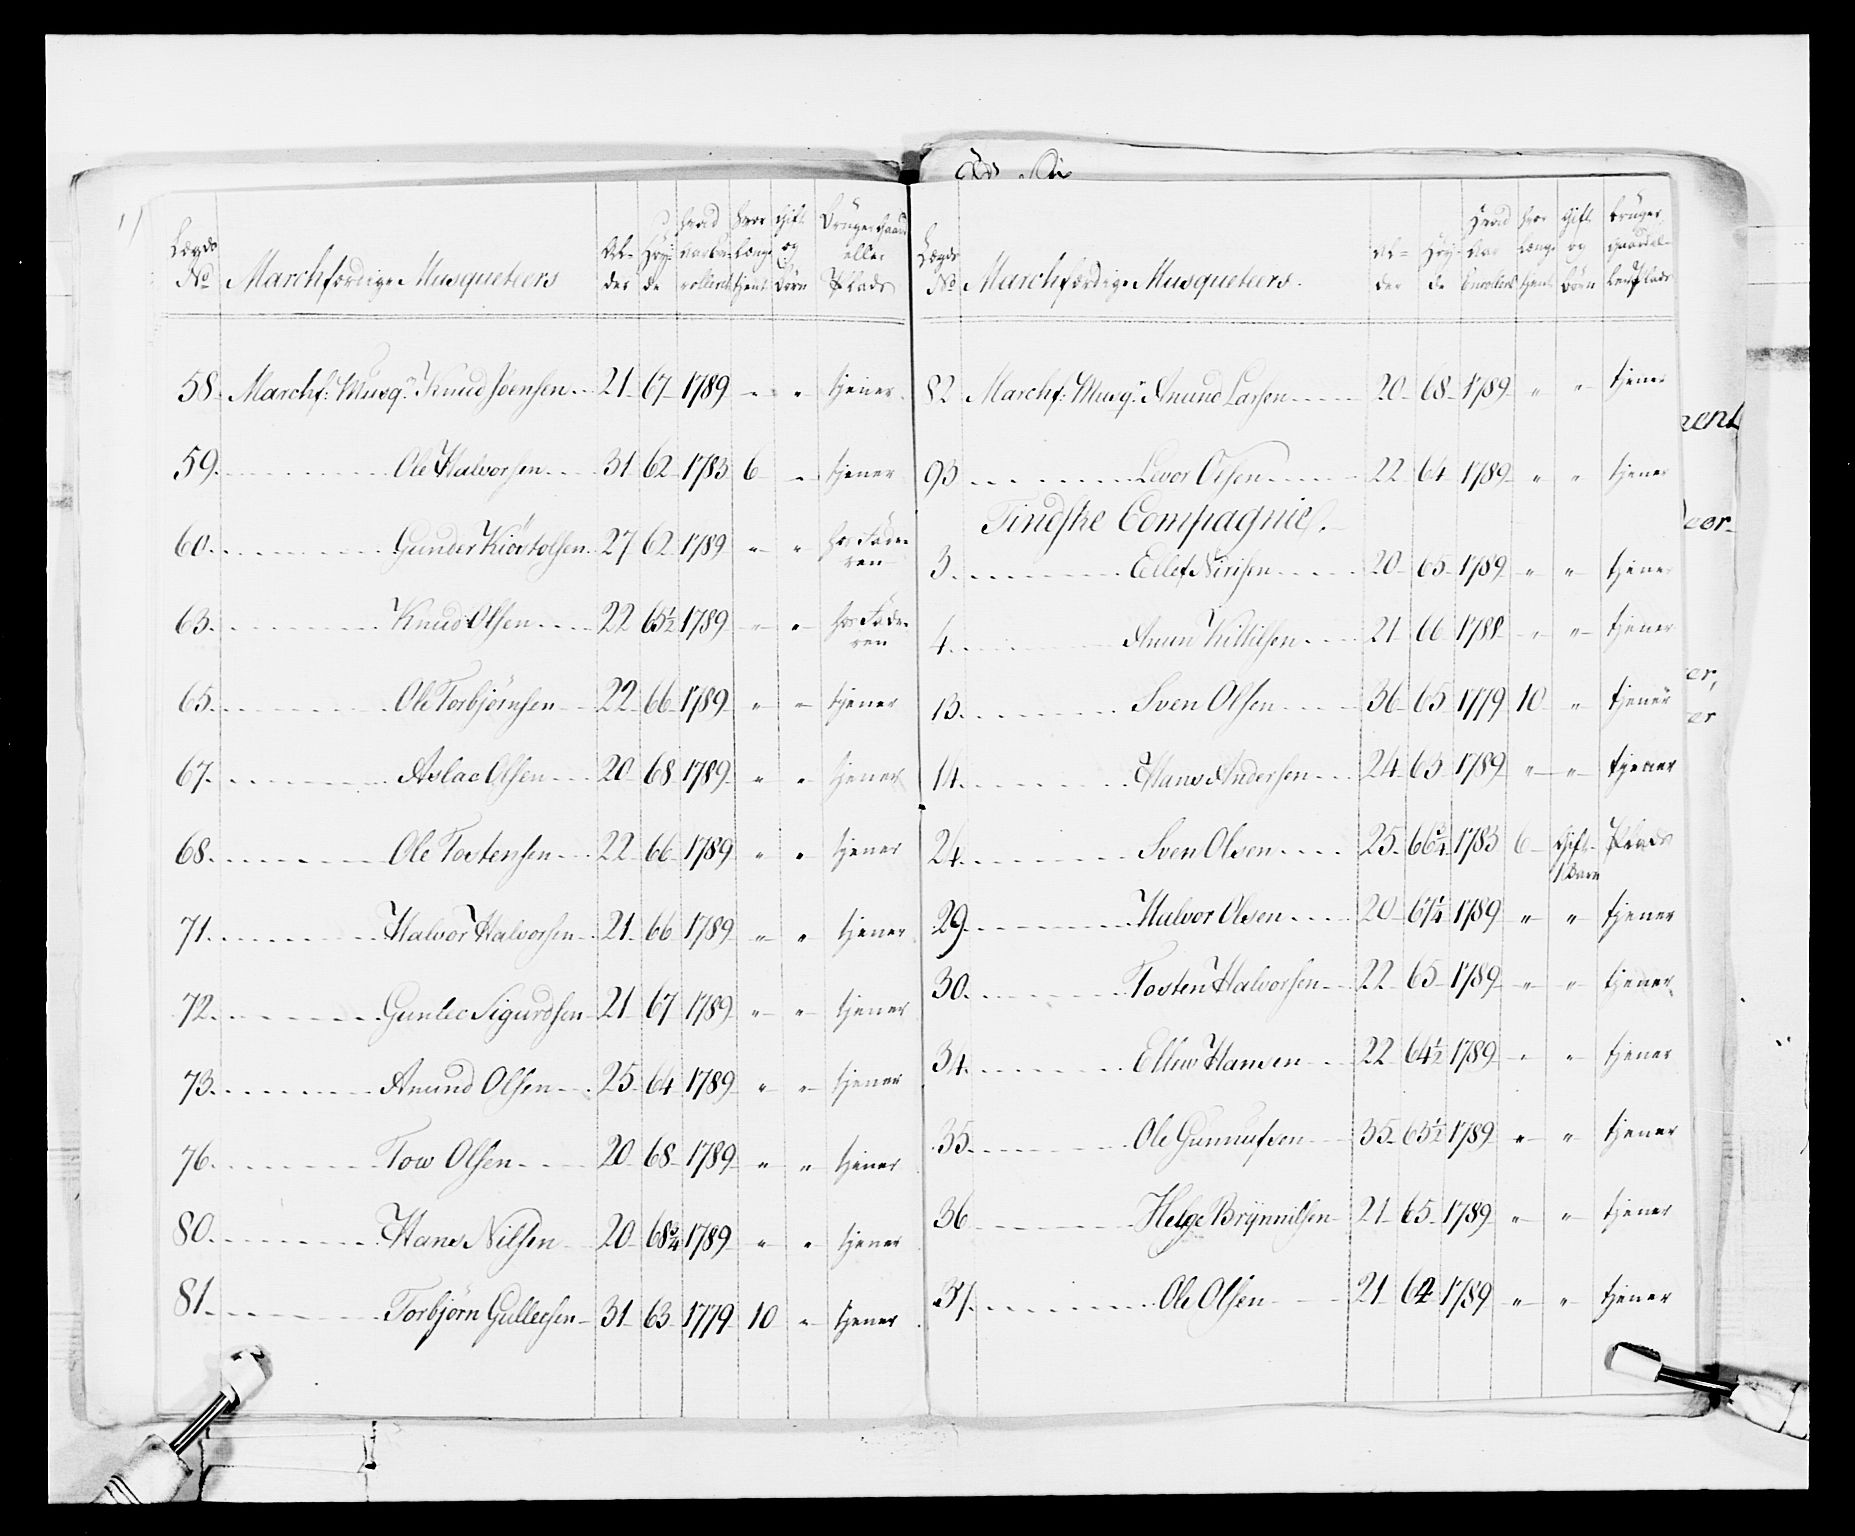 Lægds No Marchfærdige Musqueteers Al-der Høy-de hvad Aar En-rollerit hvor længe tjent Gift og Børn Bruger Gaard eller Plads
58. Marchf: Musq: Knud Joensen 21 67 1789 " " tjener
59. Ole Halvorsen 31 62 1783 6 " tjener
60. Gunder Kiøstolsen 27 62 1789 " " hos Fade-ren
63. Knud Olsen 22 65½ 1789 " " hos Fade-ren
65. Ole Torbjørnsen 22 66 1789 " " tjener
67. Aslac Olsen 20 68 1789 " " tjener
68. Ole Tostensen 22 66 1789 " " tjener
71. Halvor Halvorsen 21 66 1789 " " tjener
72. Gunlec Sigurdsen 21 67 1789 " " tjener
73. Anund Olsen 25 64 1789 " " tjener
76. Tow Olsen 20 68 1789 " " tjener
80. Hans Nilsen 20 68¾ 1789 " " tjener
81. Torbjørn Gullecsen 31 63 1779 10 " tjener
Lægds No Marchfærdige Musqueteers. Al-der Høy-de Hvad Aar Enrollerit hvor længe tjent Gift og Børn bruger Gaard el-ler Plads
82 Marchf: Musq: Anund Larsen 20 68 1789 " " tjener
93 Livor Olsen 22 64 1789 " " tjener
Tindske Compagnie.
3. Ellef Nirisen 20 65 1789 " " tjener
4. Anun Kittilsen 21 66 1788 " " tjener
13. Sven Olsen 36 65 1779 10 " tjener
14. Hans Andersen 24 63 1789 " " tjener
24. Sven Olsen 25 66¾ 1783 6 Gift 1 Barn Plads
29. Halvor Olsen 20 67¼ 1789 " " tjener
30. Tosten Halvorsen 22 65 1789 " " tjener
34. Ellew Hansen 22 64½ 1789 " " tjener
35. Ole Gunnufsen 35 63½ 1789 " " tjener
36 Helge Brynnilsen 21 65 1789 " " tjener
37. Ole Olsen 21 64 1789 " " tjener